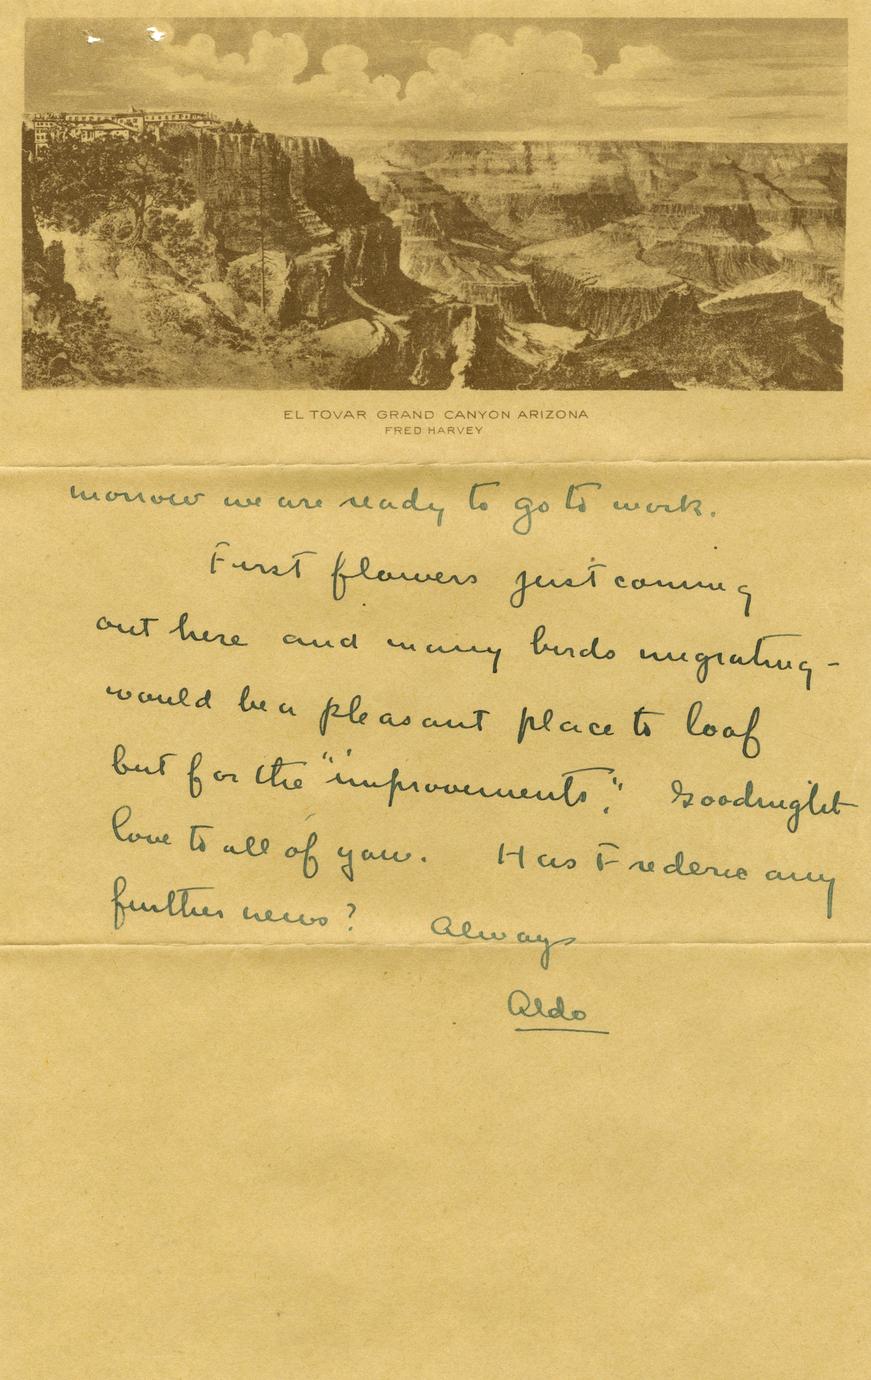 EL TOVAR GRAND CANYON ARIZONA
FRED HARVEY
morrow we are ready to go to work.
First flowers just coming
out here and many birds migrating -
would be a pleasant place to loaf
but for the "improvements." Goodnight
love to all of you. Has Frederic any
further news? Always
Aldo